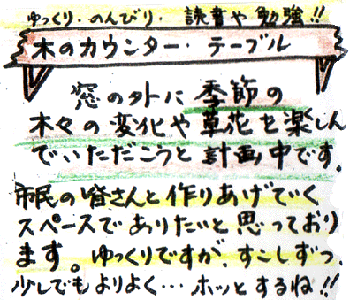 ゆっくり・のんびり・読書や勉強!!
木のカウンター・テーブル
窓の外に季節の
木々の変化や草花を楽しん
でいただこうと計画中です。
市民の皆さんと作りあげていく
スペースでありたいと思っており
ます。ゆっくりですが、すこしずつ、
少しでもよりよく…ホッとするね!!